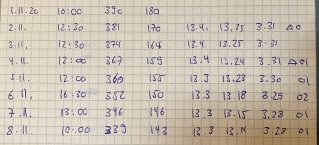 1.11.20 10:00 390 180
2.11. 12:30 381 170 13.4. 13.25 3.31
3.11. 12:30 374 164 13.4. 13.25 3.31
4.11. 12:00 367 159 13.4 13.24 3.31
5.11. 12:00 360 155 13.3 13.23 3.30 01
6.11. 16:30 352 150 13.3 13.18 3.29 02
7.11. 13:00 346 146 13.3 13.15 3.28 01
8.11. 10:00 339 143 13.3 13.14 3.28 01